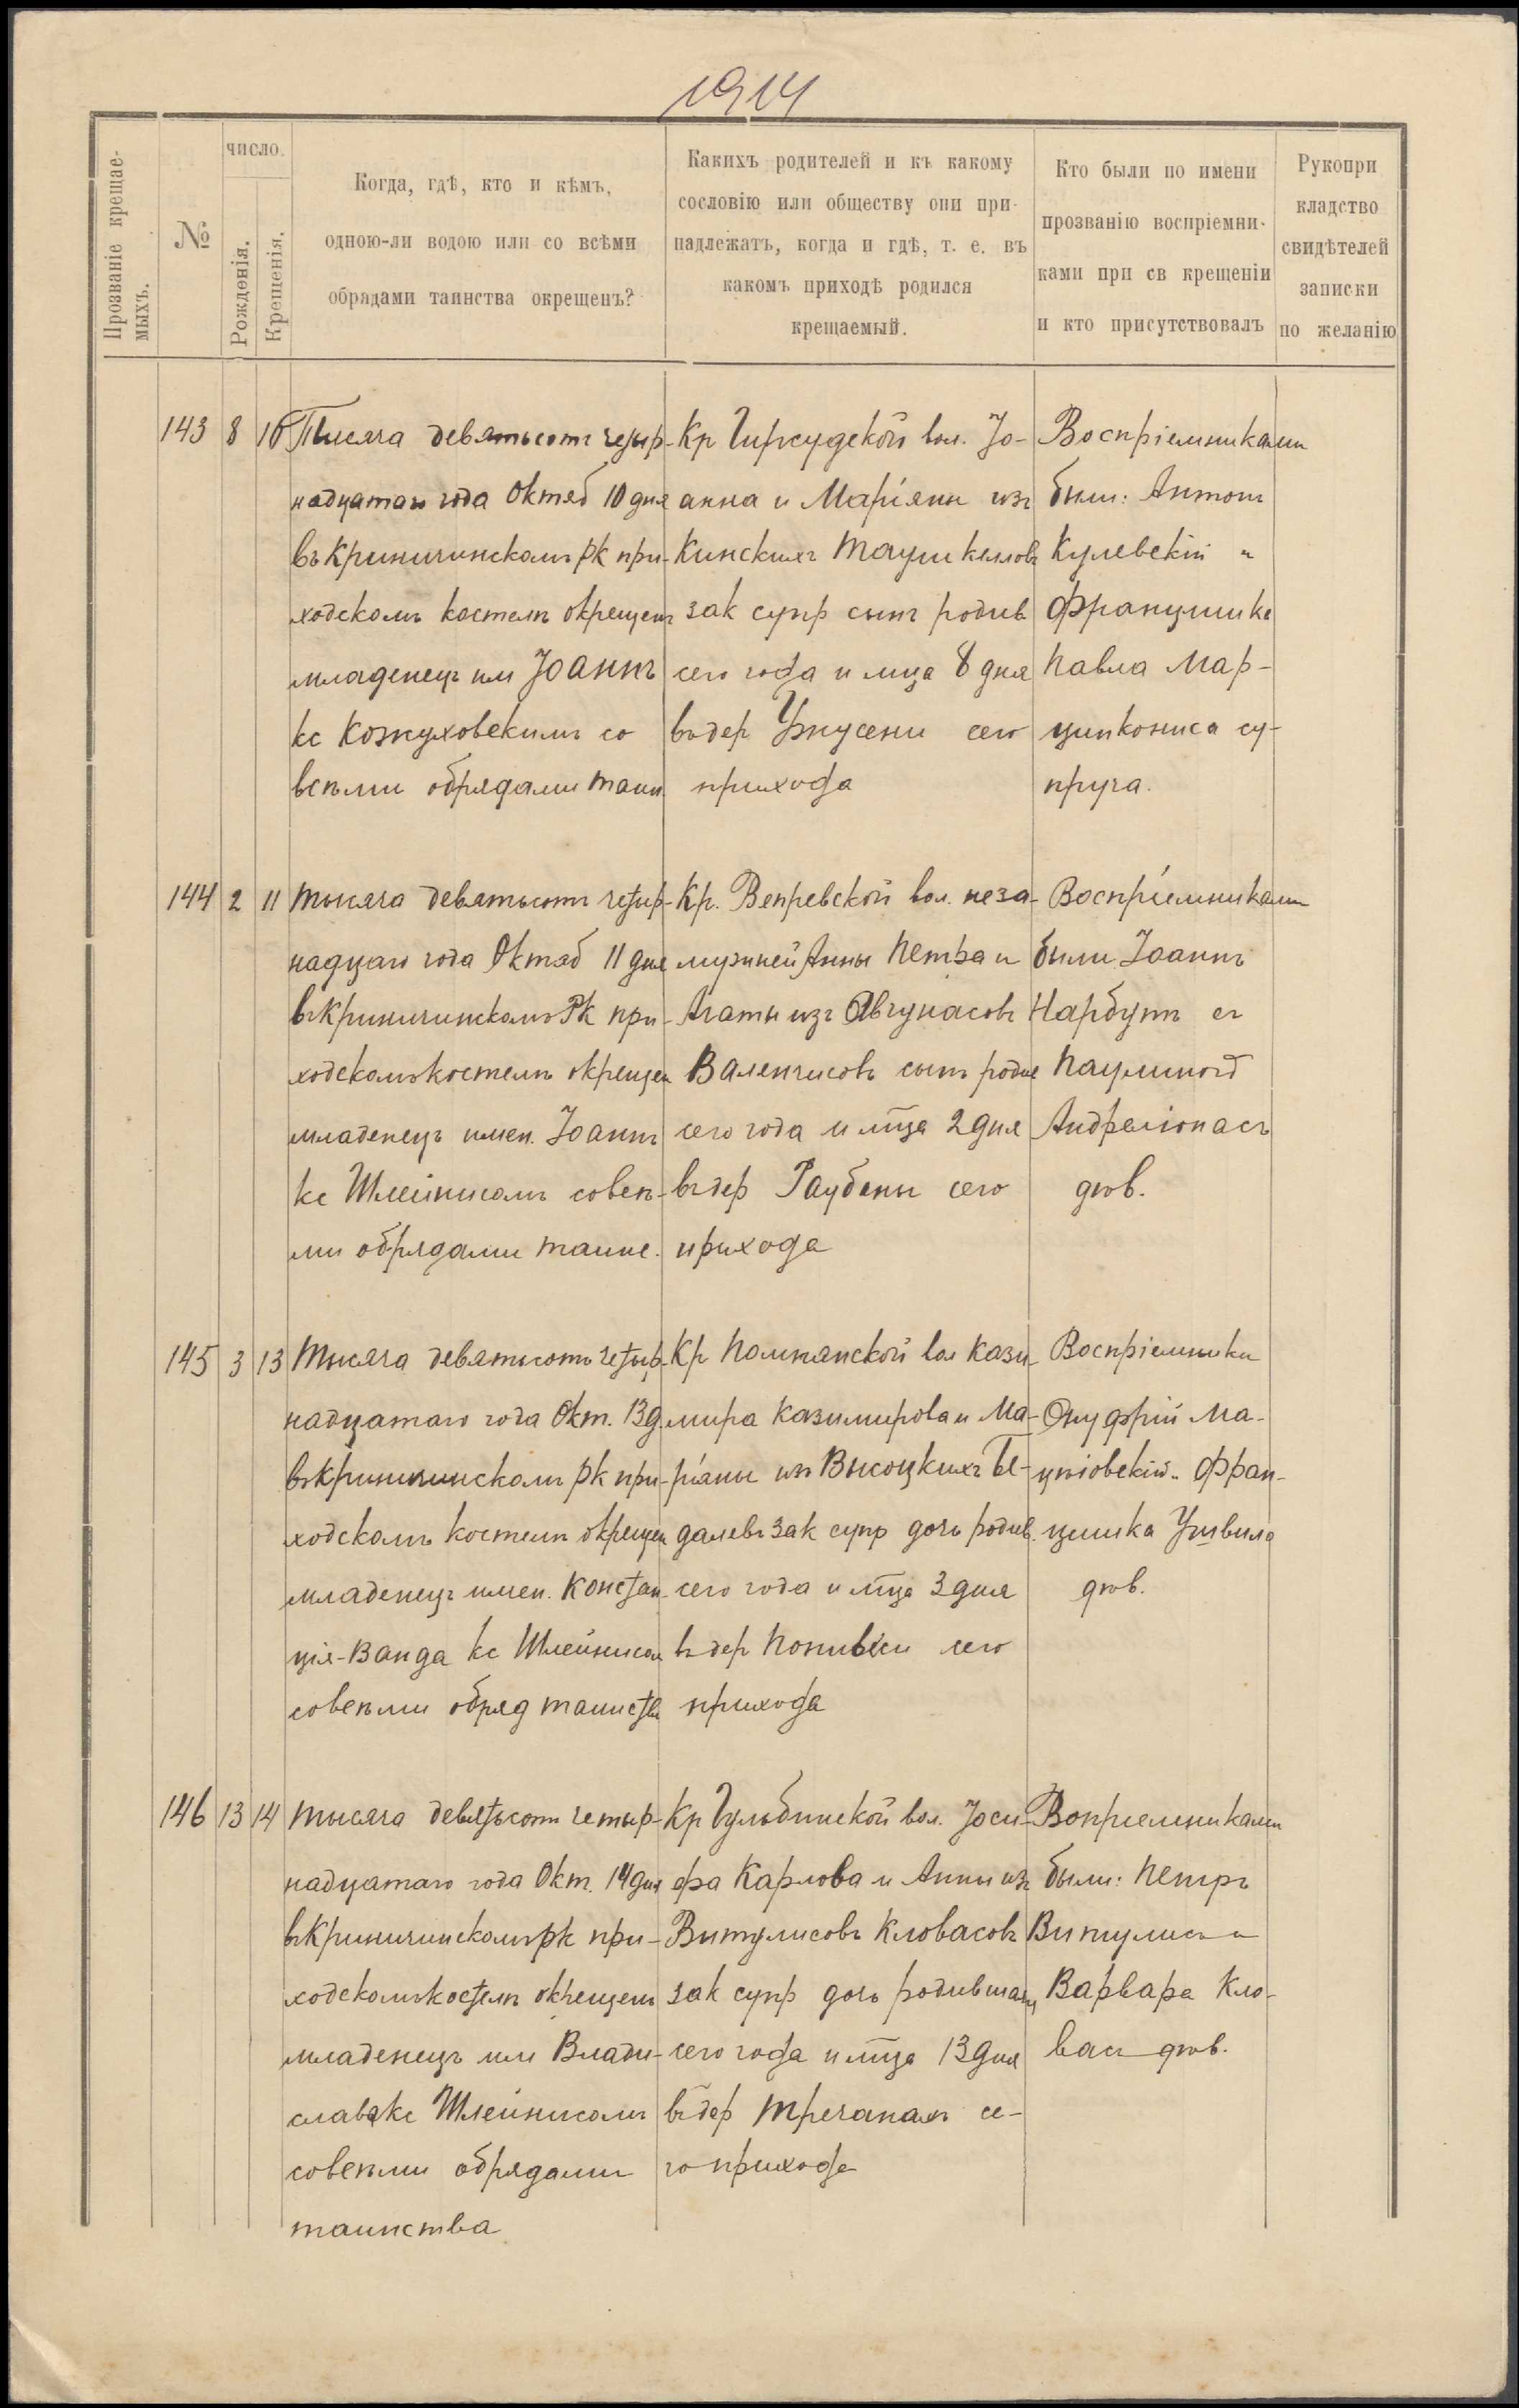 1914
Прозваніе крещае-
мыхъ.
№
число.
Рожденія.
Крещенія.
Когда, гдѣ, кто и кѣмъ,
одною-ли водою или со всѣми
обрядами таинства окрещенъ?
Какихъ родителей и къ какому
сословію или обществу они при-
надлежатъ, когда и гдѣ, т. е. въ
какомъ приходѣ родился
крещаемый.
Кто были по имени
прозванію воспріемни-
ками при св крещеніи
и кто присутствовалъ
Рукопри
кладство
свидѣтелей
записки
по желанію
143 8 10
Тысяча девятьсотъ четыр-
надцатаго года Октяб 10 дня
въ Криничинскомъ рк при-
ходскомъ костелѣ окрещенъ
младенецъ им Іоаннъ
кс Кожуховскимъ со
всѣми обрядами таин
Кр Гирсудской вол. Іо-
анна и Маріяны изъ
Кинскихъ
зак супр сынъ родив
сего года и мца 8 дня
въ дер Ужусени сего
прихода
Воспріемниками
были: Антонъ
Кулевскій и
Францишка
Павла Мар-
цинкониса су-
пруга.
144 2 11
тысяча девятьсотъ четыр-
надцаго года Октяб 11 дня
въ Криничинскомъ Рк при-
ходскомъ костелѣ окрещен
младенецъ имен. Іоаннъ
кс Шлейнисомъ совсѣ-
ми обрядами таинс.
Кр. Вепревской вол. неза-
мужней Анны Петра и
Агаты изъ Явгунасовъ
Валенчисовъ сынъ родив
сего года и мца 2 дня
въ дер Раубаны сего
прихода
Воспріемниками
были Іоаннъ
Нарбутъ съ
Паулиной
Андреліонасъ
дѣв.
145 3 13
Тысяча девятьсотъ четыр-
надцатаго года Окт. 13 д.
въ Криничинскомъ рк при-
ходскомъ костелѣ окрещен
младенецъ имен. Констан-
ція-Ванда кс Шлейнисом
совсѣми обряд таинств
Кр Помпянской вол Кази-
мира Казимирова и Ма-
ріяны изъ Высоцкихъ Бе-
далевъ зак супр дочь родив.
сего года и мца 3 дня
въ дер Понивки сего
прихода
Воспріемники
Онуфрій Ма-
цѣіовскій и Фран-
цишка Ужвило
дѣв.
146 13 14
тысяча девятьсотъ четыр-
надцатаго года Окт. 14 дня
въ Криничинскомъ рк при-
ходскомъ костелѣ окрещенъ
младенецъ им Влади-
слава кс Шлейнисомъ
совсѣми обрядами
таинства
Кр Гульбинской вол. Іоси-
фа Карлова и Анны изъ
Витулисовъ Кловасовъ
зак супр дочь родившаяся
сего года и мца 13 дня
въ дер Тречанахъ се-
го прихода
Вопріемниками
были: Петръ
Витулисъ и
Варвара Кло-
васъ дѣв.